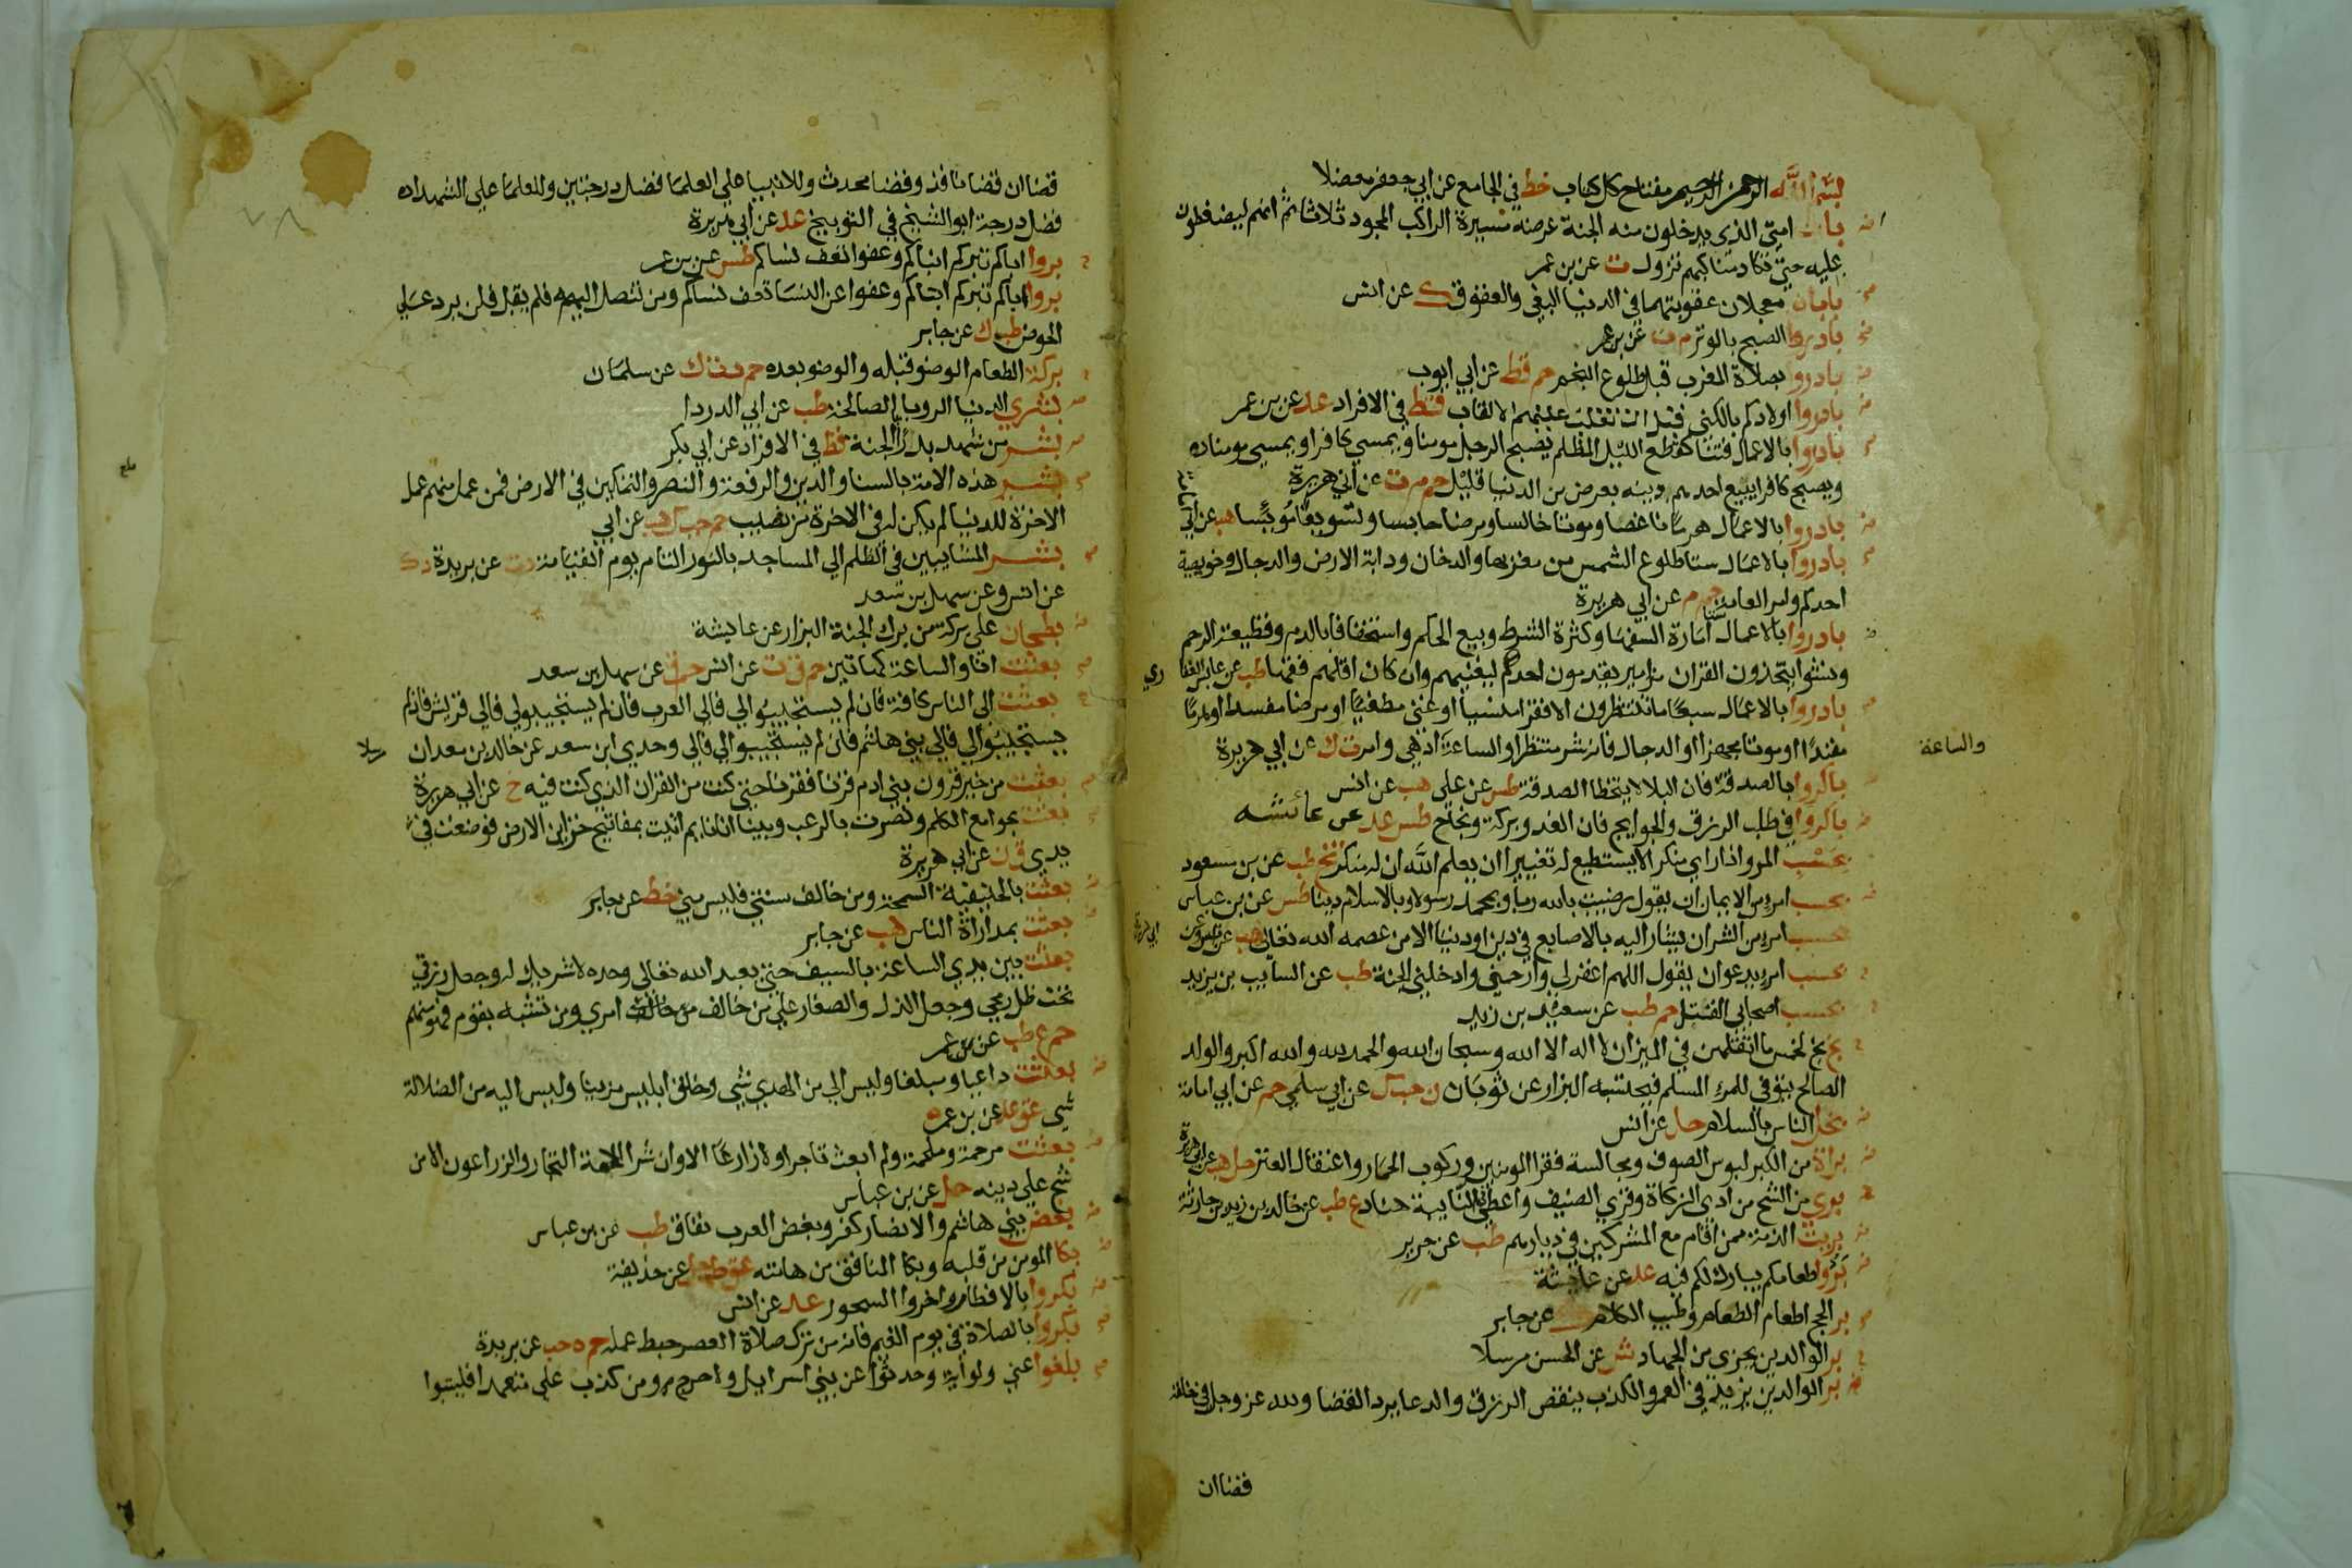 بسم الله الرحمن الرحيم مفتاح كل كتاب خط في الجامع عن ابي جعفر معضلا
باب امتي الذي يدخلون منه الجنة عرضه مسيرة الراكب المجود ثلاثا ثم انهم ليضغطون
عليه حتى تكاد مناكبهم تزول ت عن بن عمر
بابان معجلان عقوبتهما في الدنيا البغي والعقوق ك عن انس
بادروا الصبح بالوتر م ت عن بن عمر
بادروا بصلاة المغرب قبل طلوع النجم حم قط عن ابي ايوب
بادروا اولادكم بالكنى قبل ان تغلب عليهم الالقاب قط في الافراد عد عن بن عمر
بادروا بالاعمال فتنا كقطع الليل المظلم يصبح الرجل مومنا ويمسي كافرا ويمسي مومنا
ويصبح كافرا يبيع احدهم دينه بعرض من الدنيا قليل حم م ت عن ابي هريرة
بادروا بالاعمال هرما ناغصا وموتا خالسا ومرضا حابسا وتسويفا مويسا هب عن ابي
بادروا بالاعمال ستا طلوع الشمس من مغربها والدخان ودابة الارض والدجال وخويصة
احدكم وامر العامة حم م عن ابي هريرة
بادروا بالاعمال ستا امارة السفها وكثرة الشرط وبيع الحكم واستخفافا بالدم وقطيعة الرحم
ونشوا يتخذون القران مزامير يقدمون احدهم ليغنيهم وان كان اقلهم فقها طب عن عابس الغفا
ري
بادروا بالاعمال سبعا ما تنتظرون الا فقرا منسيا او غنى مطغيا او مرضا مفسدا او هرما
مفندا او موتا مجهزا او الدجال فانه شر منتظر او الساعة ادهى وامر ت ك عن ابي هريرة
والساعة
باكروا بالصدقة فان البلا لا يتخطا الصدقة طس عن علي هب عن انس
باكروا في طلب الرزق والحوايج فان الغدو بركة ونجاح طس عد عن عائشه
بحسب المرء اذا راي منكرا لا يستطيع له تغييرا ان يعلم الله انه له منكر تخ طب عن بن مسعود
بحسب امرء من الايمان ان يقول رضيت بالله ربا وبمحمد رسولا وبالاسلام دينا طس عن بن عباس
بحسب امرء من الشر ان يشار اليه بالاصابع في دين او دنيا الا من عصمه الله تعالى هب عن انس وعن
ابي هريرة
بحسب امرء يدعو ان يقول اللهم اغفر لي وارحمني وادخلني الجنة طب عن السايب بن يزيد
بحسب اصحابي القتل حم طب عن سعيد بن زيد
بخ بخ لخمس ما اثقلهن في الميزان لا اله الا الله وسبحان الله والحمد لله والله اكبر والولد
الصالح يتوفى للمرء المسلم فيحتسبه البزار عن ثوبان ن حب ك عن ابي سلمي حم عن ابي امامة
بخل الناس بالسلام حل عن انس
براة من الكبر لبوس الصوف ومجالسة فقرا المومنين وركوب الحمار واعتقال العنز حل هب عن ابي هريرة
بري من الشح من ادى الزكاة وقرى الضيف واعطى في النايبة هناد ع طب عن خالد بن زيد بن حارثة
بريت الذمة ممن اقام مع المشركين في ديارهم طب عن جرير
بردوا طعامكم يبارك لكم فيه عد عن عايشة
بر الحج اطعام الطعام وطيب الكلام ك عن جابر
بر الوالدين يجزي من الجهاد ش عن الحسن مرسلا
بر الوالدين يزيد في العمر والكذب ينقص الرزق والدعا يرد القضا ولله عز وجل في خلقه
قضاان
قضاان قضا نافذ وقضا محدث وللانبيا على العلما فضل درجتين وللعلما على الشهداه
فضل درجة ابو الشيخ في التوبيخ عد عن ابي هريرة
بروا اباكم تبركم ابناكم وعفوا تعف نساكم طس عن بن عمر
بروا اباكم تبركم ابناكم وعفوا عن النسا تعف نساكم ومن تنصل اليه فلم يقبل فلن يرد علي
الحوض طب ك عن جابر
بركة الطعام الوضو قبله والوضو بعده حم د ت ك عن سلمان
بشري الدنيا الرويا الصالحة طب عن ابي الدردا
بشر من شهد بدرا بالجنة قط في الافراد عن ابي بكر
بشر هذه الامة بالسنا والدين والرفعة والنصر والتمكين في الارض فمن عمل منهم عمل
الاخرة للدنيا لم يكن له في الاخرة من نصيب حم حب ك هب عن ابي
بشر المشايين في الظلم الي المساجد بالنور التام يوم القيامة د ت عن بريدة ه ك
عن انس وعن سهل بن سعد
بطحان على بركة من برك الجنة البزار عن عايشة
بعثت انا والساعة كهاتين حم ق ت عن انس حم ق عن سهل بن سعد
بعثت الى الناس كافة فان لم يستجيبوا لي فالى العرب فان لم يستجيبوا لي فالي قريش فان لم
يستجيبوا لي فالي بني هاشم فان لم يستجيبوا لي فالي وحدي ابن سعد عن خالد بن معدان
مرسلا
بعثت من خير قرون بني ادم قرنا فقرنا حتى كنت من القرن الذي كنت فيه خ عن ابي هريرة
بعثت بجوامع الكلم ونصرت بالرعب وبينا انا نايم اتيت بمفاتيح خزاين الارض فوضعت في
يدي ق ن عن ابي هريرة
بعثت بالحنيفية السمحة ومن خالف سنتي فليس مني خط عن جابر
بعثت بمداراة الناس هب عن جابر
بعثت بين يدي الساعة بالسيف حتى يعبد الله تعالى وحده لا شريك له وجعل رزقي
تحت ظل رمحي وجعل الذل والصغار على من خالف امري ومن تشبه بقوم فهو منهم
حم ع طب عن بن عمر
بعثت داعيا ومبلغا وليس الي من الهدي شي وخلق ابليس مزينا وليس اليه من الضلالة
شي عق عد عن بن عمر
بعثت مرحمة وملحمة ولم ابعث تاجرا ولا زارعا الا وان شرار الامة التجار والزراعون الا من
شح على دينه حل عن بن عباس
بغض بني هاشم والانصار كفر وبغض العرب نفاق طب عن بن عباس
بكا المومن من قلبه وبكا المنافق من هامته عق طب حل عن حذيفة
بكروا بالافطار واخروا السحور عد عن انس
بكروا بالصلاة في يوم الغيم فانه من ترك صلاة العصر حبط عمله حم ه حب عن بريدة
بلغوا عني ولو اية وحدثوا عن بني اسرايل ولا حرج ومن كذب علي متعمدا فليتبوا